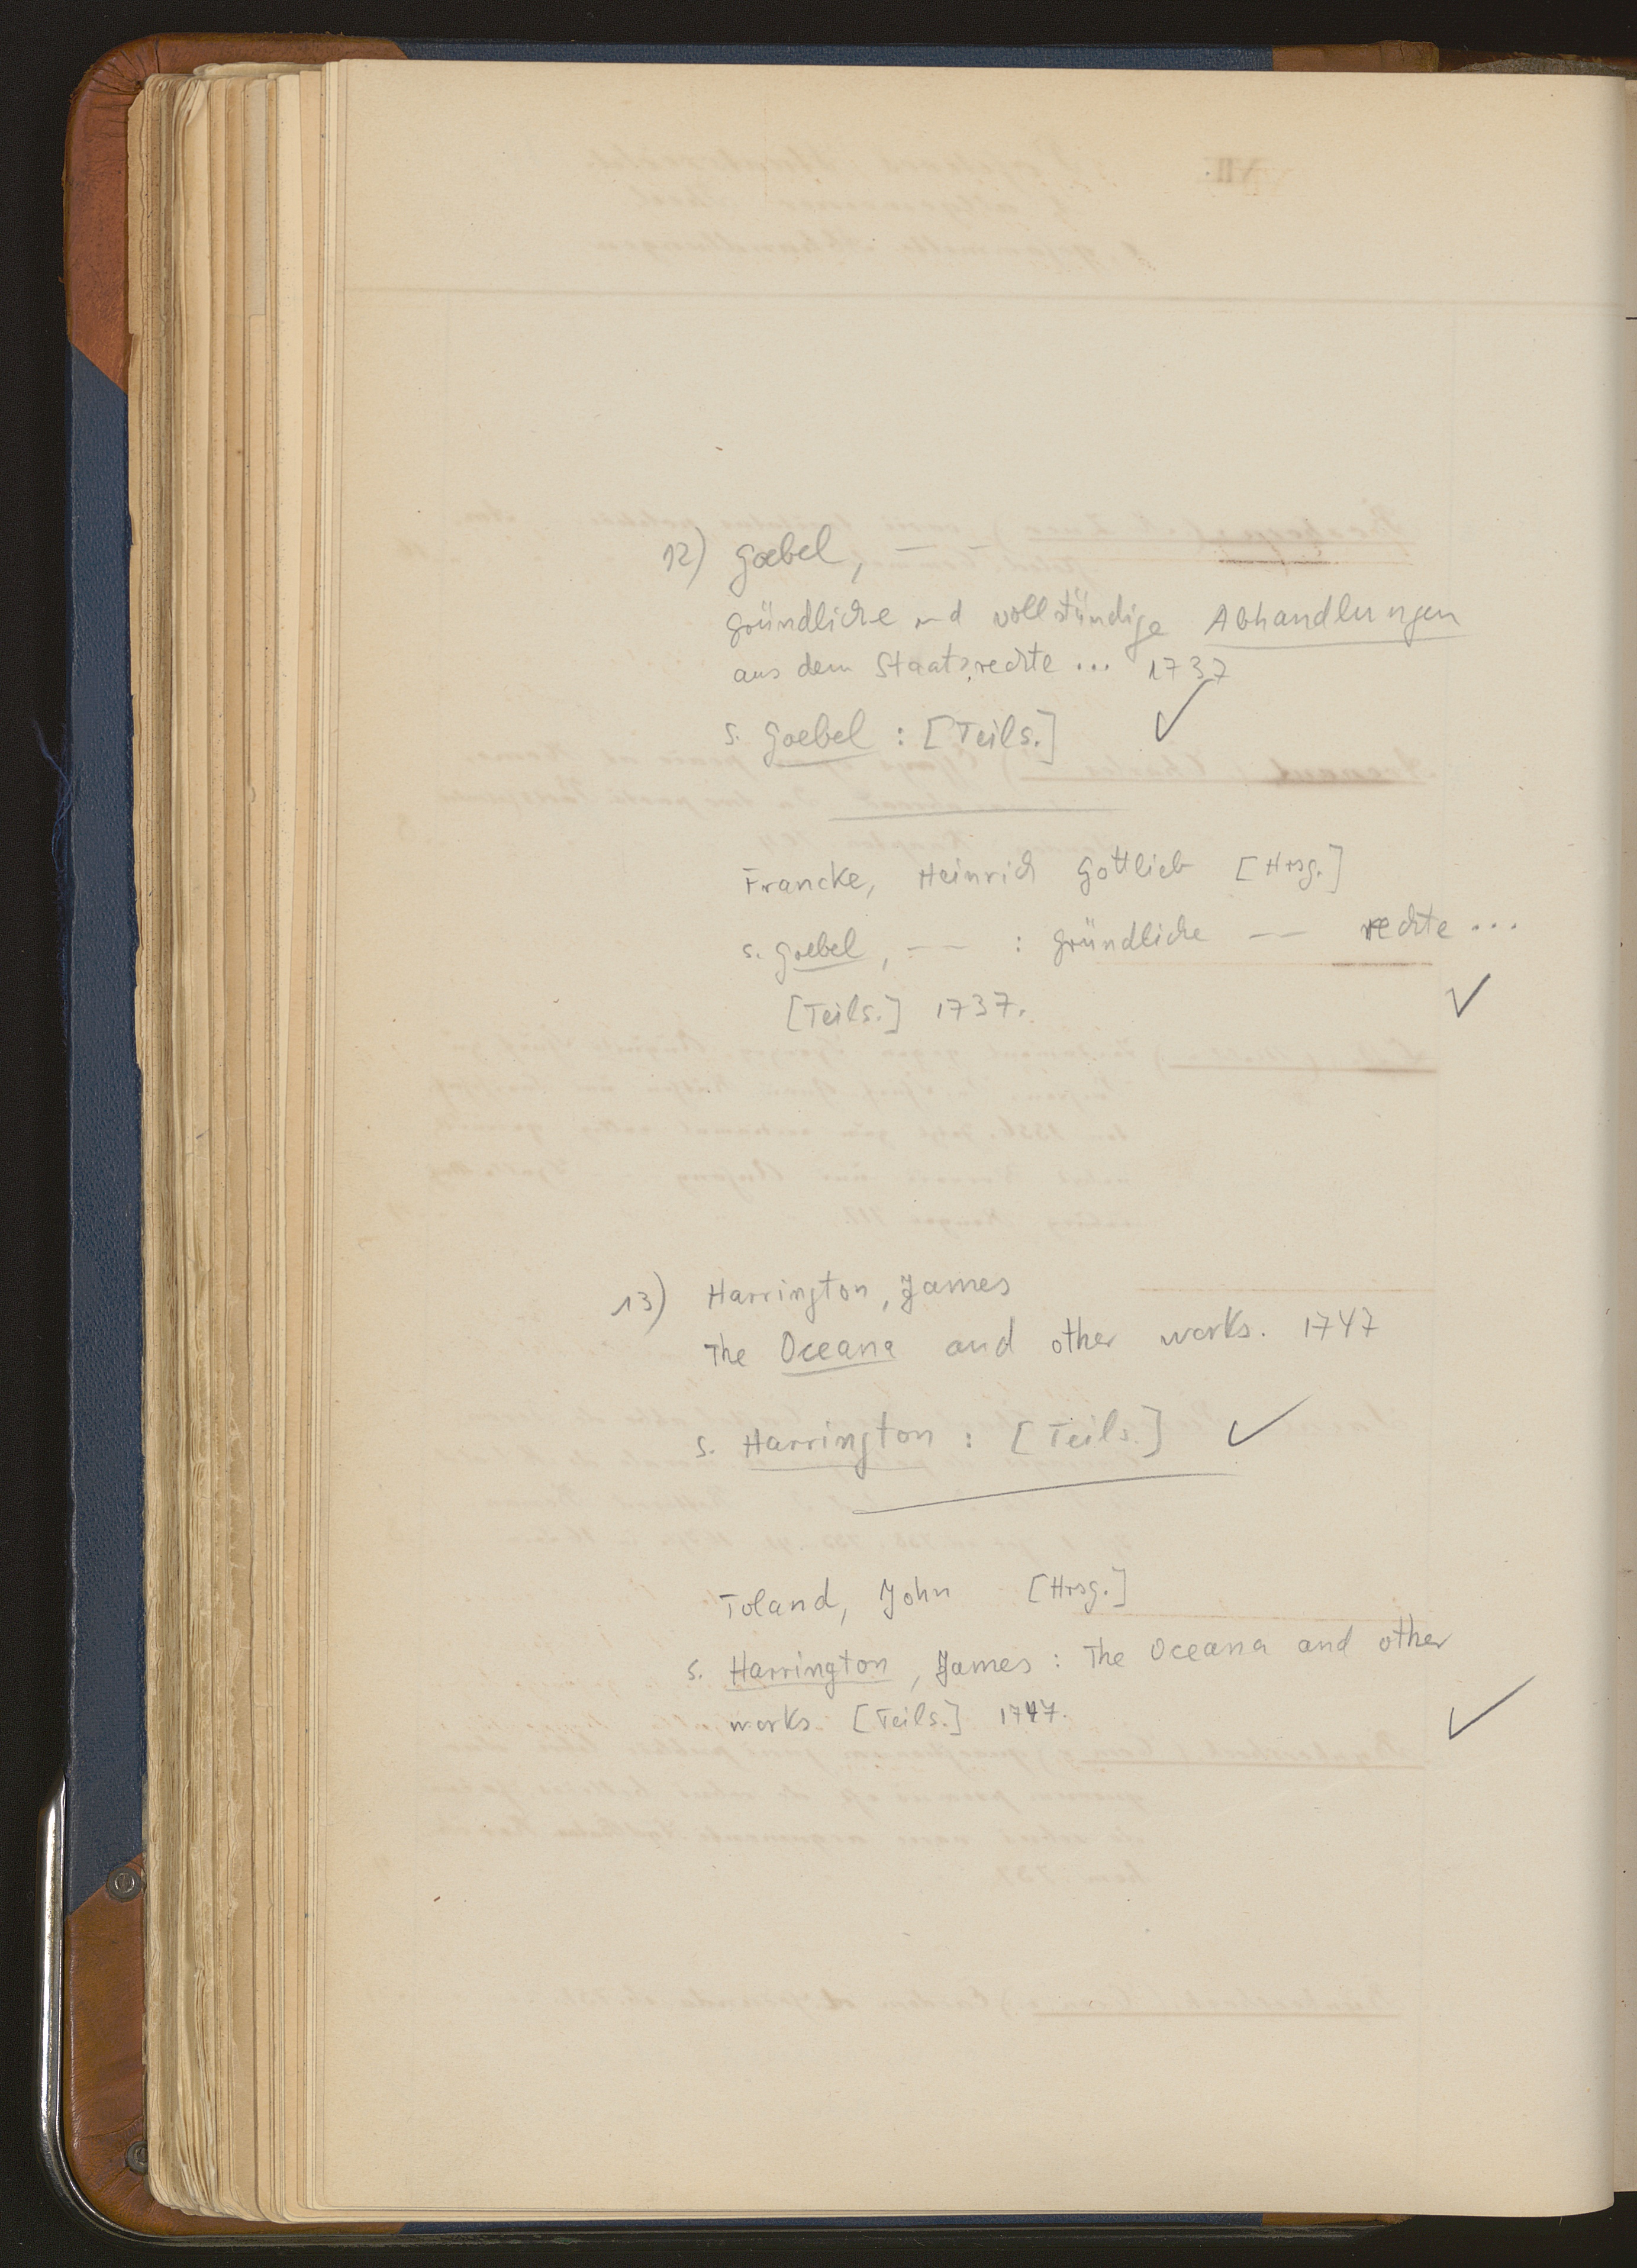 12) Goebel, — —
gründliche und vollständige Abhandlungen
aus dem Staatsrechte ... 1737
s. Goebel : [Teils.] ✓
Francke, Heinrich Gottlieb [Hrsg.]
s. Goebel, — — : gründliche — — rechte ...
[Teils.] 1737. ✓
13) Harrington, James
The Oceana and other works. 1747
s. Harrington : [Teils.] ✓
Toland, John [Hrsg.]
s. Harrington, James : The Oceana and other
works [Teils.] 1747. ✓